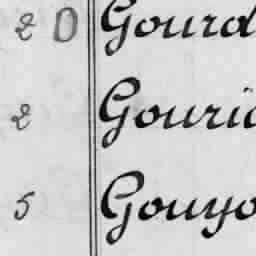 2 0 Gourd
2 Gouri
5 Gouyo